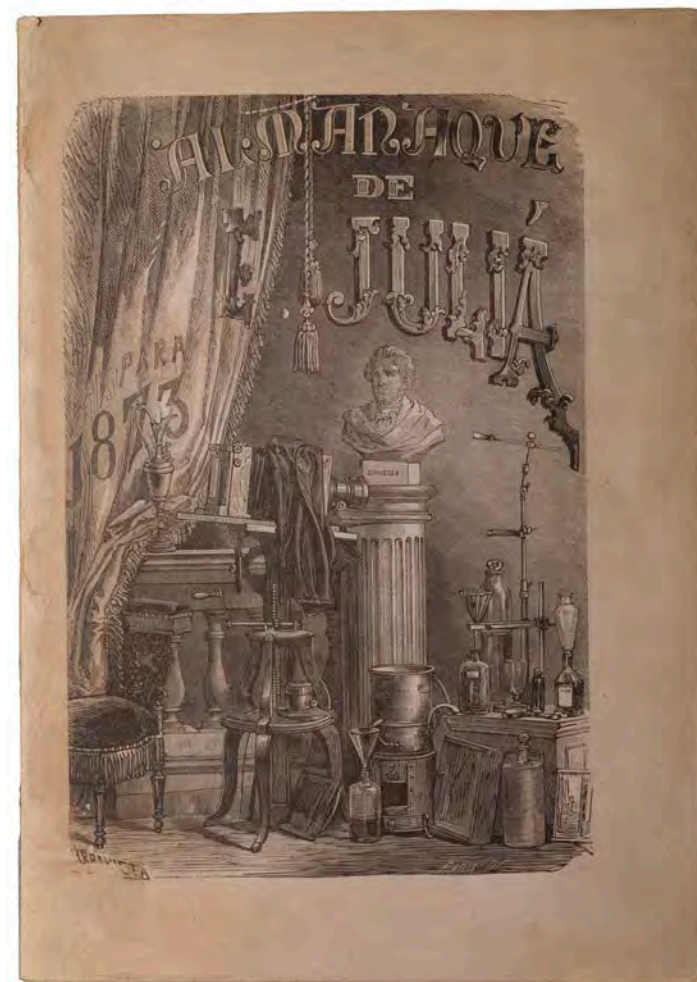 ALMANAQUE
DE
E. JULIÁ
PARA
1873